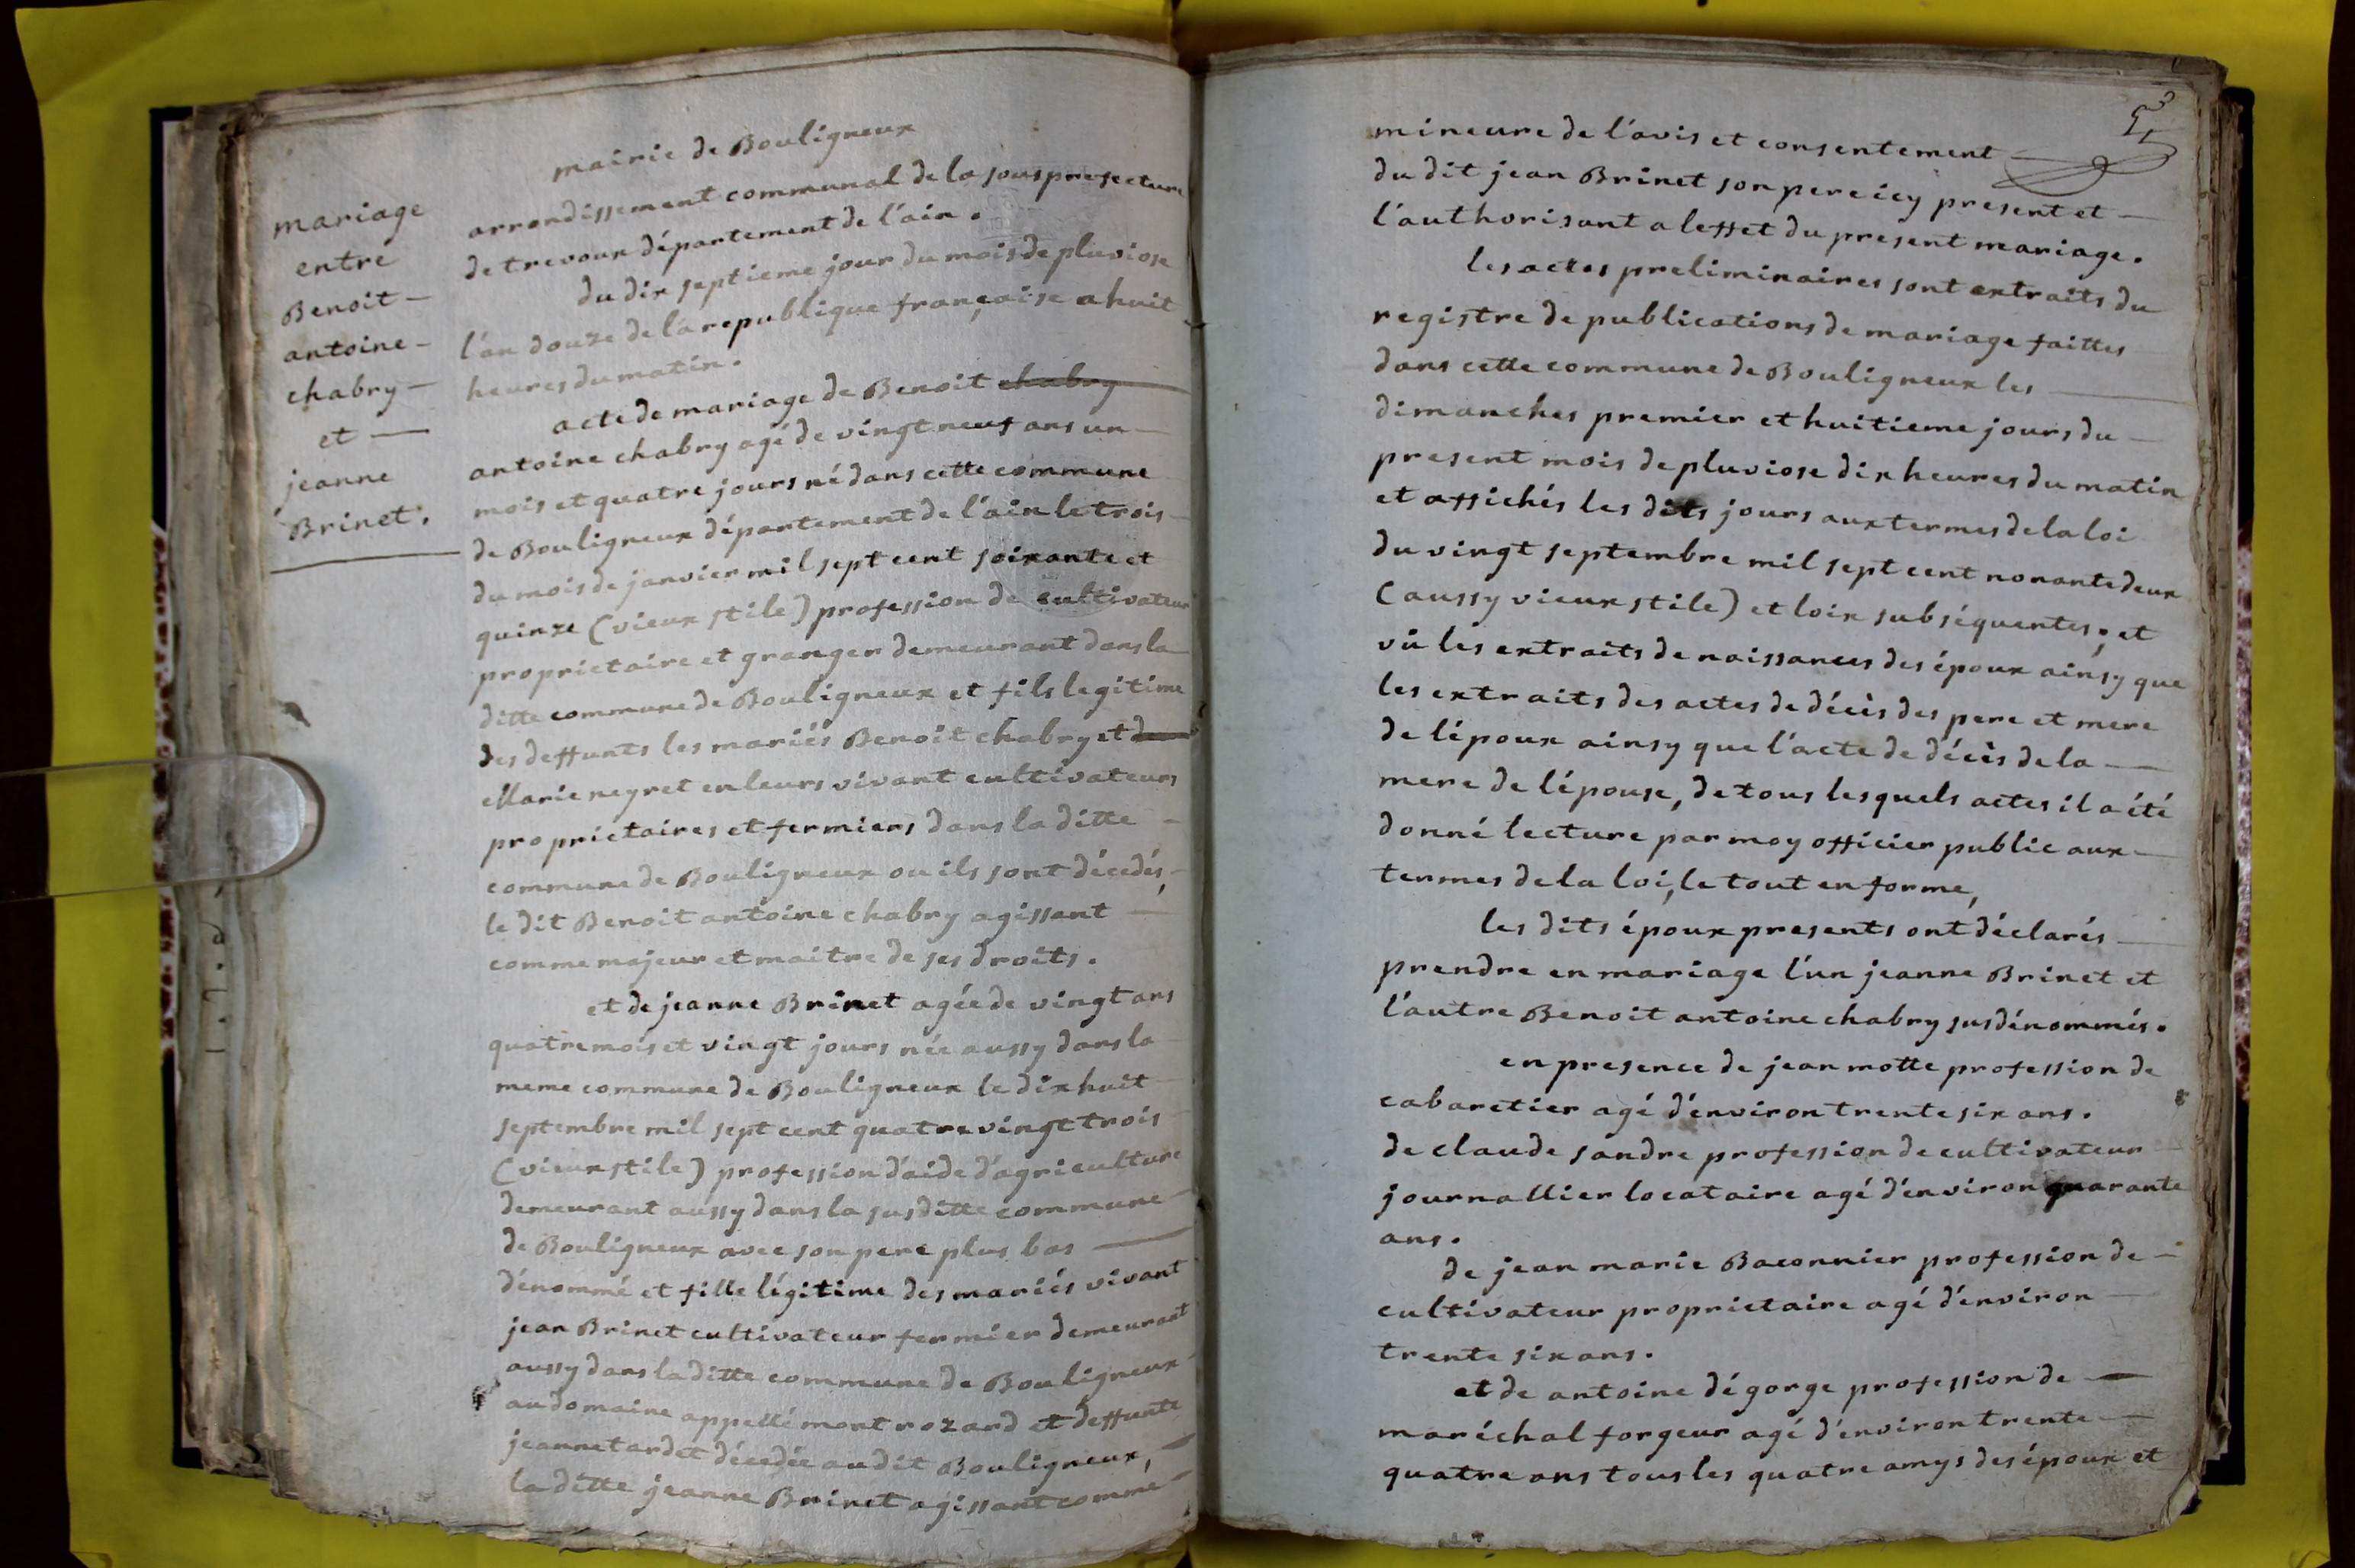 mariage
entre
Benoit -
antoine -
chabry -
et —
jeanne
Brinet.
mairie de Bouligneux
arrondissement communal de la sousprefecture
de trevoux département de l'ain.
du dix septieme jour du mois de pluviose
l'an douze de la republique française a huit
heures du matin.
acte de mariage de Benoit chabry
antoine chabry agé de vingt neuf ans un -
mois et quatre jours né dans cette commune
de Bouligneux département de l'ain le trois -
du mois de janvier mil sept cent soixante et
quinze (vieux stile) profession de cultivateur
proprietaire et granger demeurant dans la
ditte commune de Bouligneux et fils legitime
des deffunts les mariés Benoit chabry et de
Marie neyret en leurs vivant cultivateurs
proprietaires et fermiers dans la ditte -
commune de Bouligneux ou ils sont décedés, -
le dit Benoit antoine chabry agissant —
comme majeur et maitre de ses droits.
et de jeanne Brinet agée de vingt ans
quatre mois et vingt jours née aussy dans la
meme commune de Bouligneux le dix huit
septembre mil sept cent quatre vingt trois
(vieux stile) profession d'aide d'agriculture
demeurant aussy dans la susditte commune
de Bouligneux avec son pere plus bas —
dénommé et fille légitime des mariés vivant
jean Brinet cultivateur fermier demeurant
aussy dans la ditte commune de Bouligneux
au domaine appellé mont rozard et deffunte
jeanne tardet décedée au dit Bouligneux, -
la ditte jeanne Brinet agissant comme
mineure de l'avis et consentement
du dit jean Brinet son pere icy present et —
l'authorisant a leffet du present mariage.
les actes preliminaires sont extraits du
registre de publications de mariage faittes
dans cette commune de Bouligneux les —
dimanches premier et huitieme jours du —
present mois de pluviose dix heures du matin
et affichés les dits jours aux termes de la loi
du vingt septembre mil sept cent nonante deux
(aussy vieux stile) et loix subséquentes; et
vû les extraits de naissances des époux ainsy que
les extraits des actes de décès des pere et mere
de l'époux ainsy que l'acte de décès de la —
mere de l'épouse, de tous lesquels actes il a été
donné lecture par moy officier public aux —
termes de la loi, le tout en forme,
les dits époux presents ont déclarés —
prendre en mariage l'un jeanne Brinet et
l'autre Benoit antoine chabry susdénommés.
en presence de jean motte profession de
cabaretier agé d'environ trente six ans.
de claude sandre profession de cultivateur
journallier locataire agé d'environ quarante
ans.
de jean marie Baconnier profession de —
cultivateur proprietaire agé d'environ —
trente six ans.
et de antoine dégorge profession de —
maréchal forgeur agé d'environ trente —
quatre ans tous les quatre amys des époux et